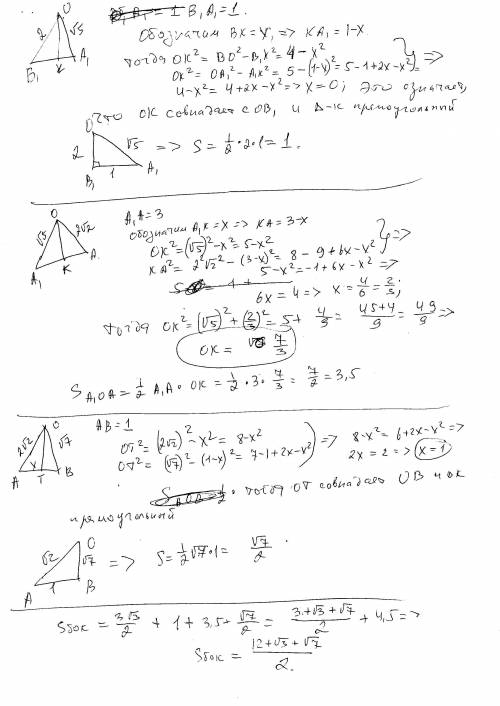 B₁A₁ = 1.
Обозначим BX = X, => KA₁ = 1-x
O
2 √5
B₁ K A₁
тогда OK² = BO² - B₁X² = 4 - x²
OK² = OA₁² - A₁K² = 5 - (1-x)² = 5 - 1 + 2x - x² } =>
4 - x² = 4 + 2x - x² => x = 0; это означает,
что OK совпадает с OB, и Δ-к прямоугольный
O
2 √5 => S = 1/2 · 2 · 1 = 1.
B₁ 1 A₁
A₁A = 3
обозначим A₁K = x => KA = 3-x
O
√5 2√2
A₁ K A
OK² = (√5)² - x² = 5 - x²
KA² = 2²√2² - (3-x)² = 8 - 9 + 6x - x² } =>
5 - x² = -1 + 6x - x² =>
6x = 4 => x = 4/6 = 2/3;
тогда OK² = (√5)² + (2/3)² = 5 + 4/9 = 45+4/9 = 49/9 =>
OK = 7/3
S A₁OA = 1/2 A₁A · OK = 1/2 · 3 · 7/3 = 7/2 = 3,5
AB = 1
O
2√2 √7
A x T B
OT² = (2√2)² - x² = 8 - x²
OT² = (√7)² - (1-x)² = 7 - 1 + 2x - x² ) => 8 - x² = 6 + 2x - x² =>
2x = 2 => x = 1
тогда OT совпадает OB и ок
прямоугольный
O
√2 √7 => S = 1/2 √7 · 1 = √7/2.
A 1 B
Sбок = 3√3/2 + 1 + 3,5 + √7/2 = 3+√3+√7/2 + 4,5 =>
Sбок = 12+√3+√7/2.